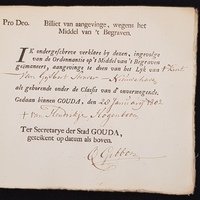 Pro Deo. Billiet van aangevinge, wegens het
Middel van 't Begraven.
IK ondergeschreve verklare by dezen, ingevolge
van de Ordonnantie op't Middel van 't Begraven
geëmaneert, aangevinge te doen van het Lyk van 't Kint
van
als gehorende onder de Classis van d' onvermogende.
Gedaan binnen GOUDA, den 20 January 1802
Ter Secretarye der Stad GOUDA,
geteikent op datum als boven.